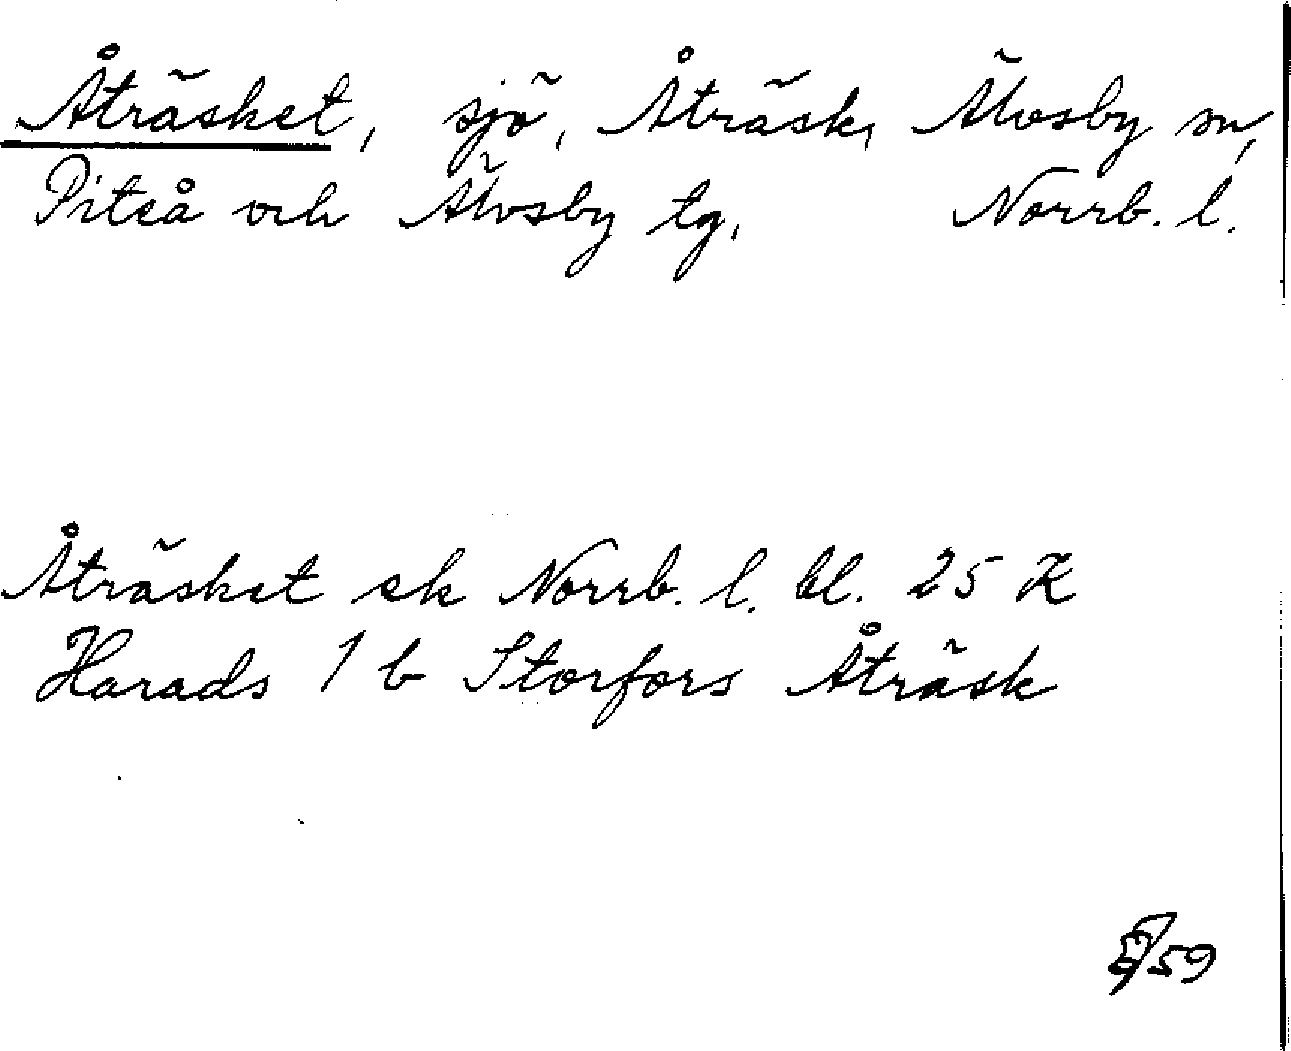 Åträsket, sjö, Åträsk, Älvsby sn,
Piteå och Älvsby tg, Norrb. l.
Åträsket ek Norrb. l. bl. 25 K
Harads 1 b Storfors Åträsk
59